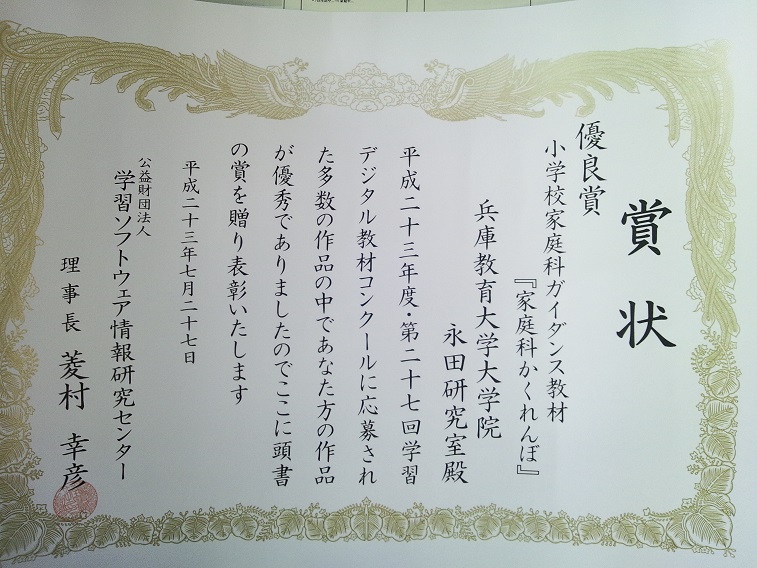 賞状
優良賞
小学校家庭科ガイダンス教材
『家庭科かくれんぼ』
兵庫教育大学大学院
永田研究室殿
平成二十三年度・第二十七回学習
デジタル教材コンクールに応募され
た多数の作品の中であなた方の作品
が優秀でありましたのでここに頭書
の賞を贈り表彰いたします
平成二十三年七月二十七日
公益財団法人
学習ソフトウェア情報研究センター
理事長 菱村 幸彦